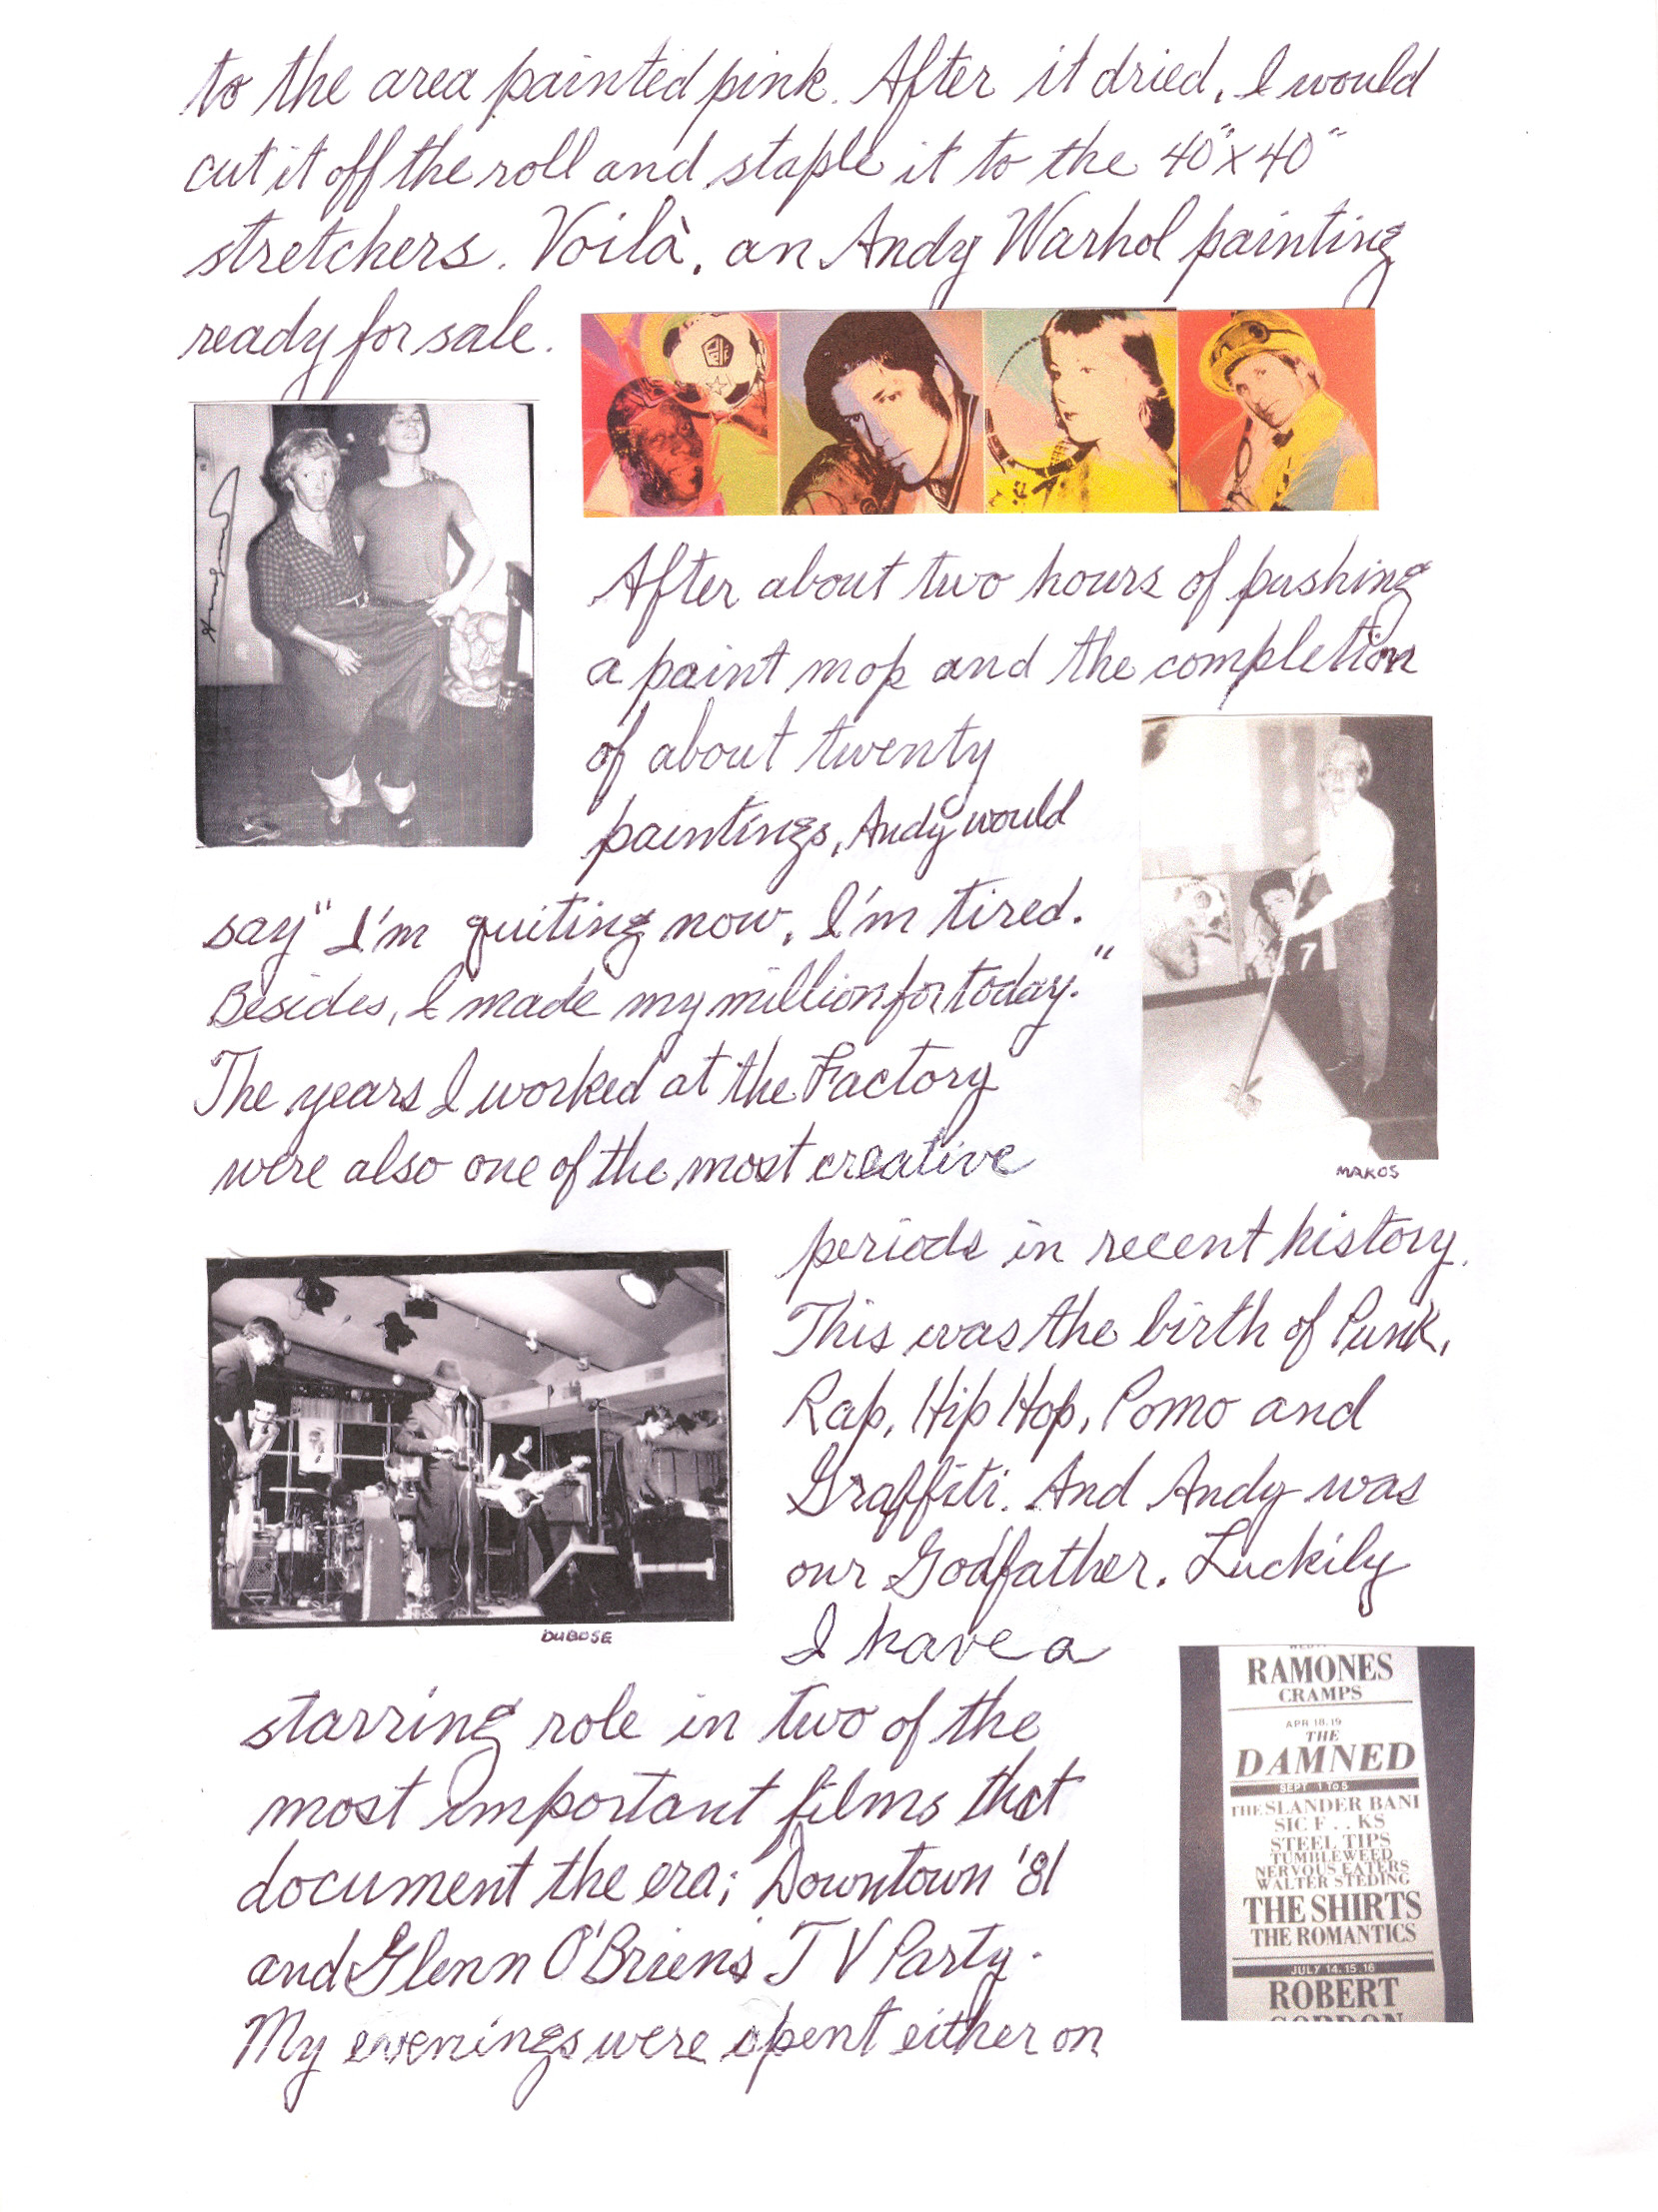 to the area painted pink. After it dried, I would
cut it off the roll and staple it to the 40"x40"
stretchers. Voilà, an Andy Warhol painting
ready for sale.
After about two hours of pushing
a paint mop and the completion
of about twenty
paintings, Andy would
say "I'm quiting now, I'm tired.
Besides, I made my million for today."
7
The years I worked at the Factory
were also one of the most creative
MAKOS
periods in recent history.
This was the birth of Punk,
Rap, Hip Hop, Pomo and
Graffiti. And Andy was
our Godfather. Luckily
DUBOSE
I have a
starring role in two of the
most important films that
document the era; Downtown '81
and Glenn O'Brien's TV Party.
My evenings were spent either on
RAMONES
CRAMPS
APR 18.19
THE
DAMNED
SEPT 1 TO 5
THE SLANDER BAN
SIC F . . KS
STEEL TIPS
TUMBLEWEED
NERVOUS EATERS
WALTER STEDING
THE SHIRTS
THE ROMANTICS
JULY 14.15.16
ROBERT
GORDON